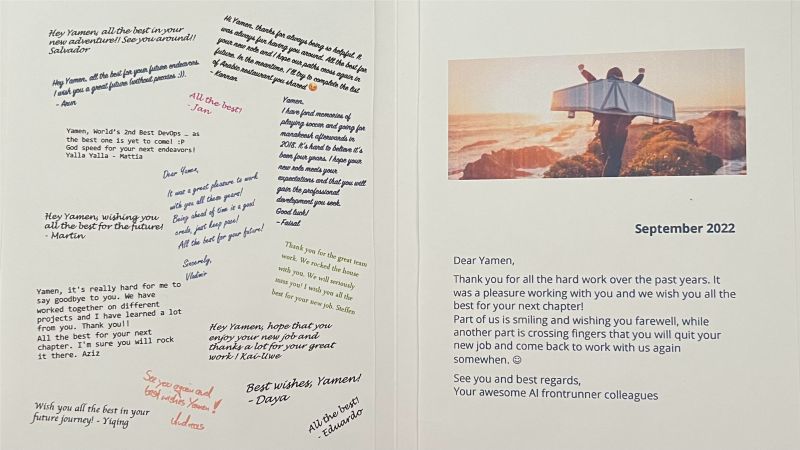 Hey Yamen, all the best in your
new adventure!! See you around!!
Salvador
Hi Yamen, thanks for always being so helpful. It
was always fun having you around. All the best for
your new role and I hope our paths cross again in
future. In the meantime, I'll try to complete the list
of Arabic restaurant you shared 😉
- Kannan
Hey Yamen, all the best for your future endeavors.
I wish you a great future (without proxies :)).
- Arun
All the best!
- Jan
Yamen,
I have fond memories of
playing soccer and going for
manakeesh afterwards in
2018. It's hard to believe it's
been four years. I hope your
new role meets your
expectations and that you will
gain the professional
devlopment you seek.
Good luck!
- Faisal
Yamen, World's 2nd Best DevOps … as
the best one is yet to come! :P
God speed for your next endeavors!
Yalla Yalla - Mattia
Dear Yamen,
It was a great pleasure to work
with you all these years!
Being ahead of time is a good
credo, just keep pace!
All the best for your future!
Sincerely,
Vladimir
Hey Yamen, wishing you
all the best for the future!
- Martin
Thank you for the great team
work. We rocked the house
with you. We will seriously
miss you! I wish you all the
best for your new job. Steffen
Yamen, it's really hard for me to
say goodbye to you. We have
worked together on different
projects and I have learned a lot
from you. Thank you!!
All the best for your next
chapter. I'm sure you will rock
it there. Aziz
Hey Yamen, hope that you
enjoy your new job and
thanks a lot for your great
work ! Kai-Uwe
See you again and
best wishes Yamen!
Andreas
Best wishes, Yamen!
- Daya
All the best!
- Eduardo
Wish you all the best in your
future journey! - Yiqing
September 2022
Dear Yamen,
Thank you for all the hard work over the past years. It
was a pleasure working with you and we wish you all the
best for your next chapter!
Part of us is smiling and wishing you farewell, while
another part is crossing fingers that you will quit your
new job and come back to work with us again
somewhen. ☺
See you and best regards,
Your awesome AI frontrunner colleagues